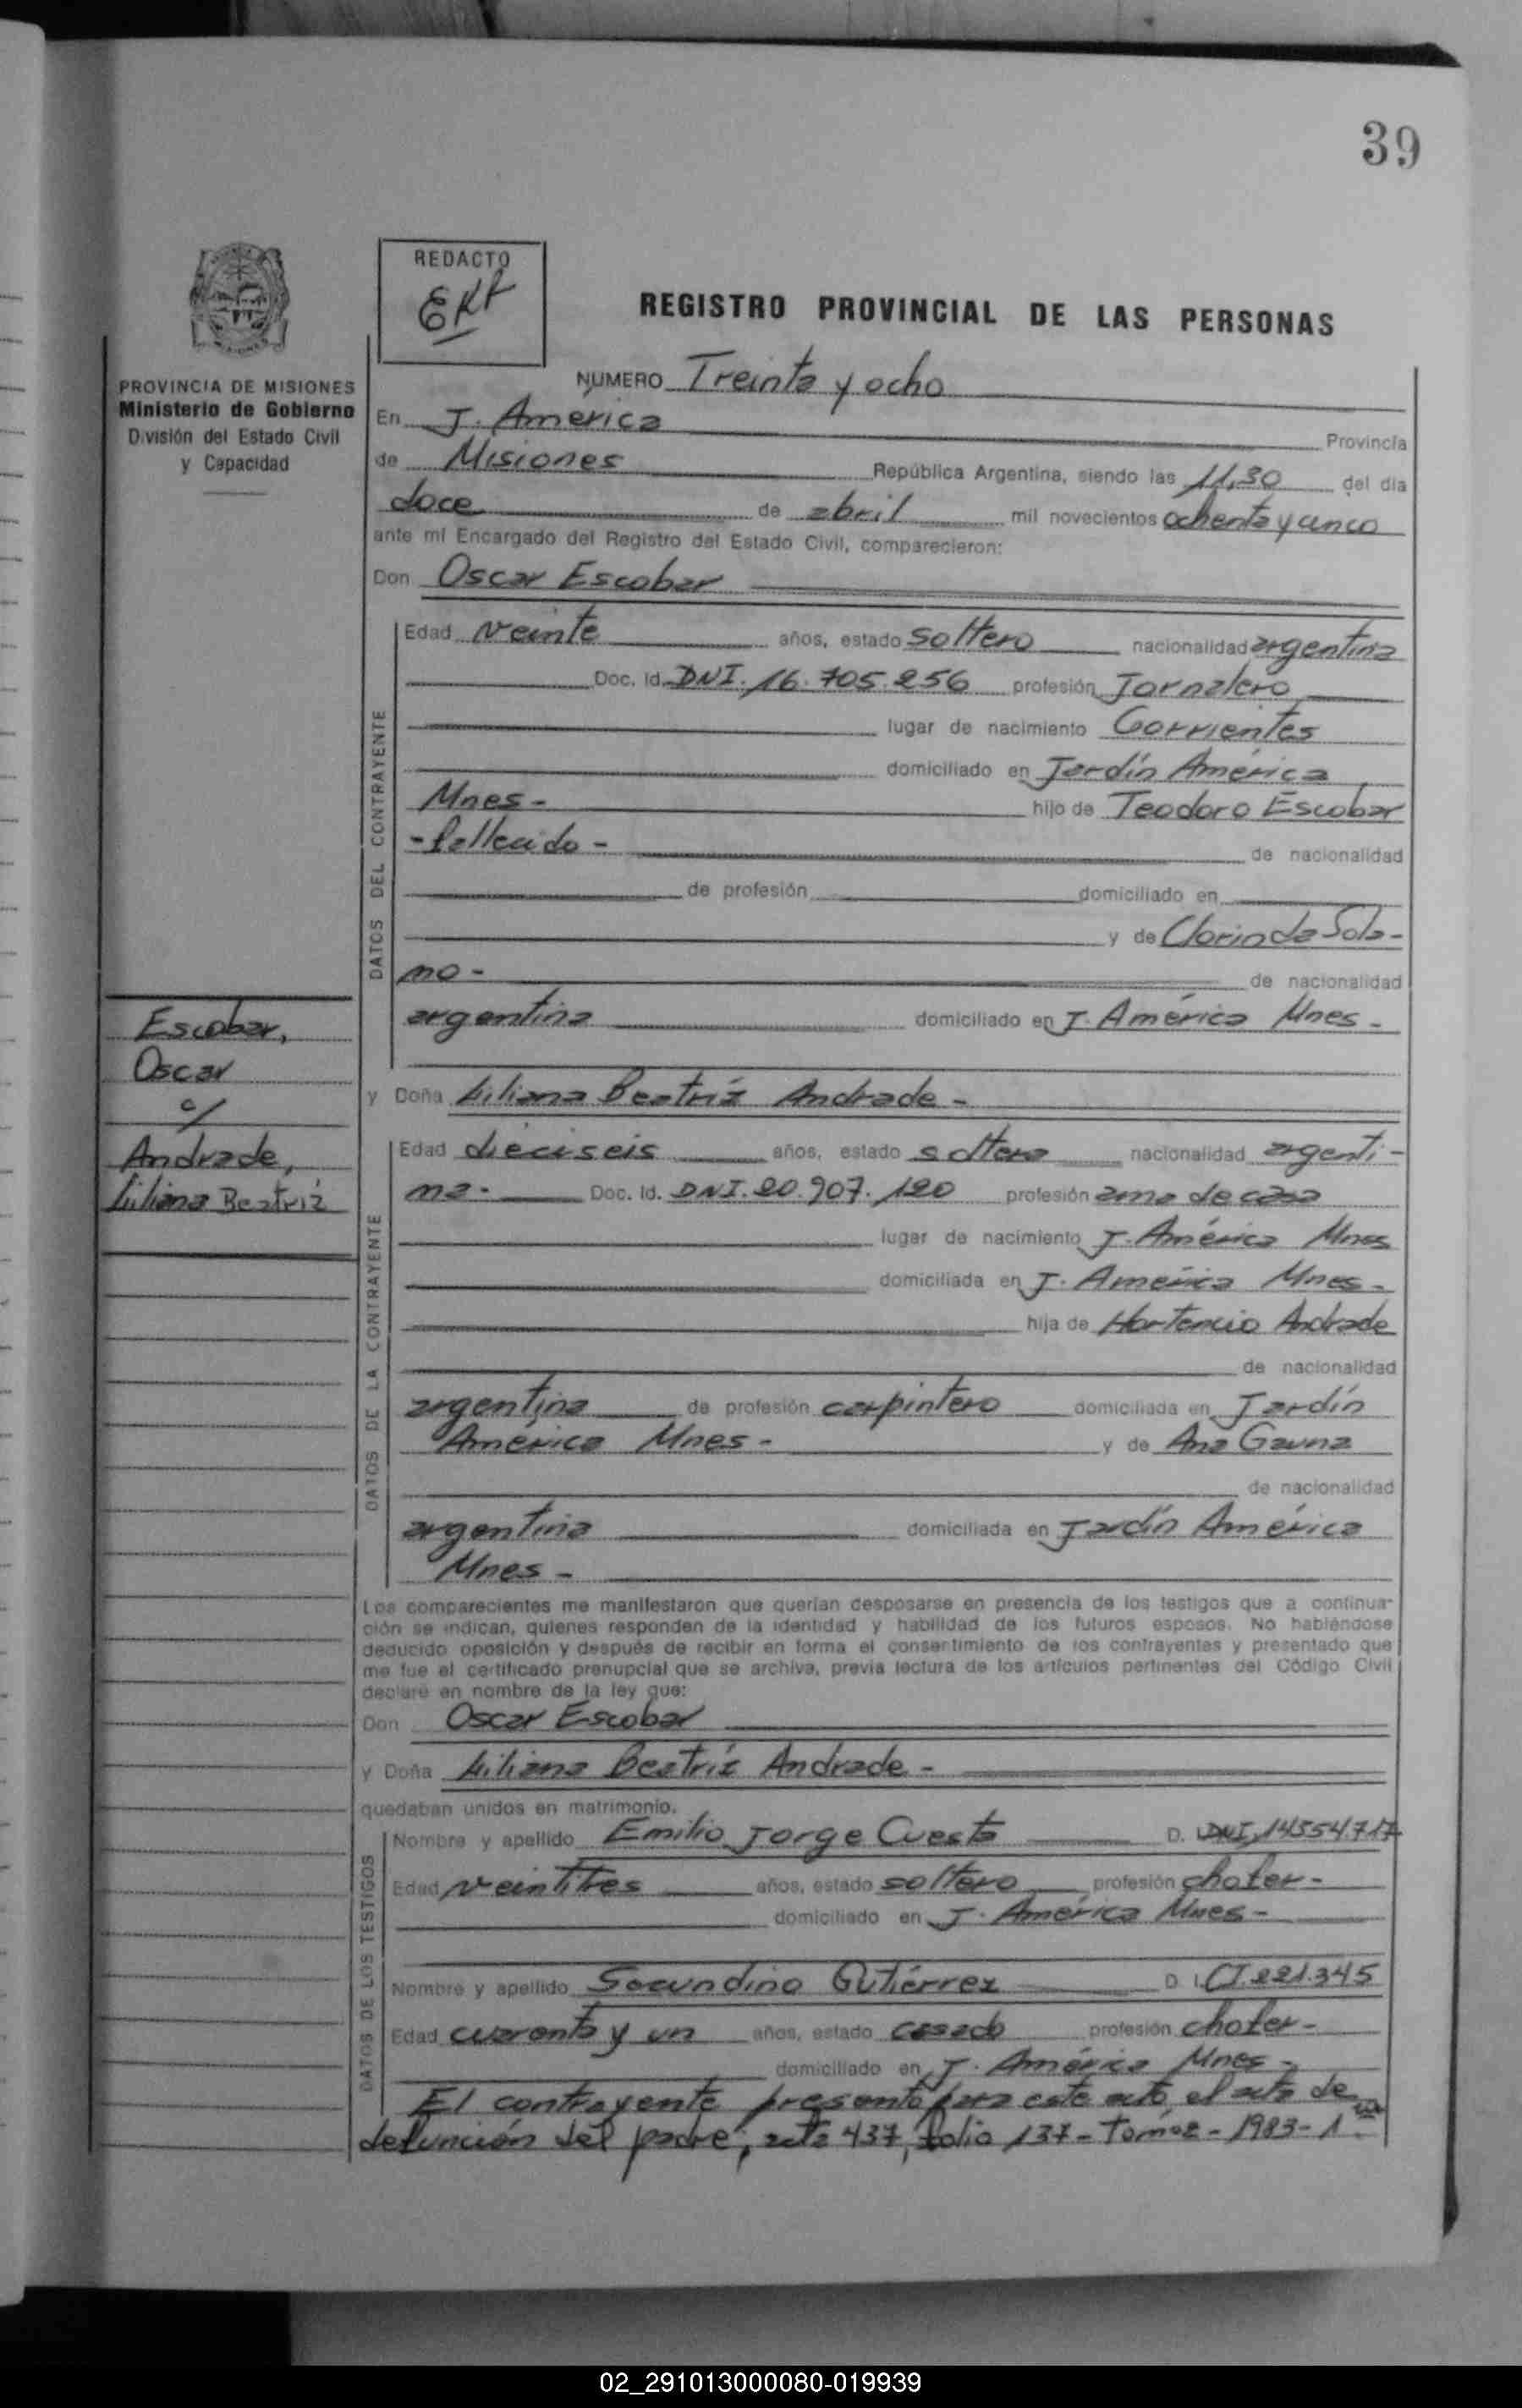 39
REDACTO
EKF
REGISTRO PROVINCIAL DE LAS PERSONAS
PROVINCIA DE MISIONES
Ministerio de Gobierno
División del Estado Civil
y Capacidad
NUMERO Treinta y ocho
En J. America Provincia
de Misiones República Argentina, siendo las 11,30 del día
doce de abril mil novecientos ochenta y cinco
ante mí Encargado del Registro del Estado Civil, comparecieron:
Don Oscar Escobar
DATOS DEL CONTRAYENTE
Edad veinte años, estado soltero nacionalidad argentina
Doc. Id. DNI. 16.705.256 profesión Jornalero
lugar de nacimiento Corrientes
domiciliado en Jardín América
Mnes- hijo de Teodoro Escobar
-fallecido- de nacionalidad
de profesión domiciliado en
y de Clorinda Sola-
no- de nacionalidad
argentina domiciliado en J. América Mnes-
Escobar,
Oscar
c/
Andrade,
Liliana Beatriz
y Doña Liliana Beatriz Andrade-
DATOS DE LA CONTRAYENTE
Edad dieciseis años, estado soltera nacionalidad argenti-
na- Doc. Id. DNI. 20.907.120 profesión ama de casa
lugar de nacimiento J. América Mnes
domiciliada en J. América Mnes-
hija de Hortencio Andrade
de nacionalidad
argentina de profesión carpintero domiciliada en Jardín
América Mnes- y de Ana Gauna
de nacionalidad
argentina domiciliada en Jardín América
Mnes-
Los comparecientes me manifestaron que querían desposarse en presencia de los testigos que a continua-
ción se indican, quienes responden de la identidad y habilidad de los futuros esposos. No habiéndose
deducido oposición y después de recibir en forma el consentimiento de los contrayentes y presentado que
me fue el certificado prenupcial que se archiva, previa lectura de los artículos pertinentes del Código Civil
declaré en nombre de la ley que:
Don Oscar Escobar
y Doña Liliana Beatríz Andrade-
quedaban unidos en matrimonio.
DATOS DE LOS TESTIGOS
Nombre y apellido Emilio Jorge Cuesta D. I. DNI, 14554.717
Edad veintitres años, estado soltero profesión chofer-
domiciliado en J. América Mnes-
Nombre y apellido Secundino Gutiérrez D. I. CI. 221.345
Edad cuarenta y un años, estado casado profesión chofer-
domiciliado en J. América Mnes-
El contrayente presentó para este acto, el acta de
defunción del padre, acta 437, folio 137- Tomo 2- 1983- 1
02_291013000080-019939